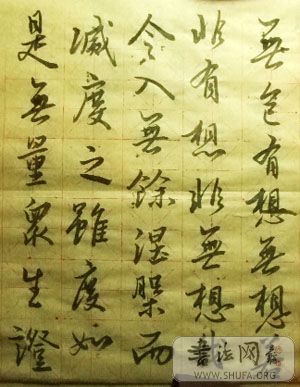 無色有想無想
非有想非無想
令入無餘涅槃而
滅度之雖度如
是無量衆生證
書法网
WWW.SHUFA.ORG